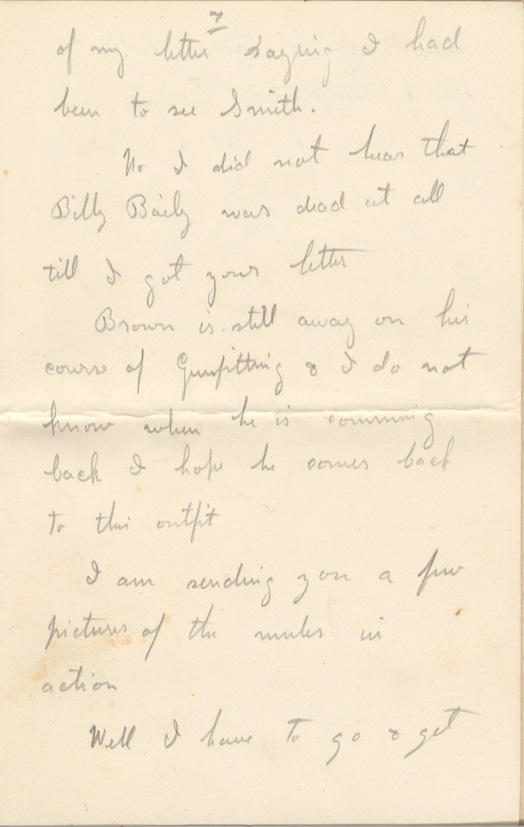 7
of my letter saying I had
been to see Smith.
No I did not hear that
Billy Baily was dead at all
till I got your letter
Brown is still away on his
course of Gunfitting & I do not
know when he is comming
back I hope he comes back
to this outfit
I am sending you a few
pictures of the mules in
action
Well I have to go & get